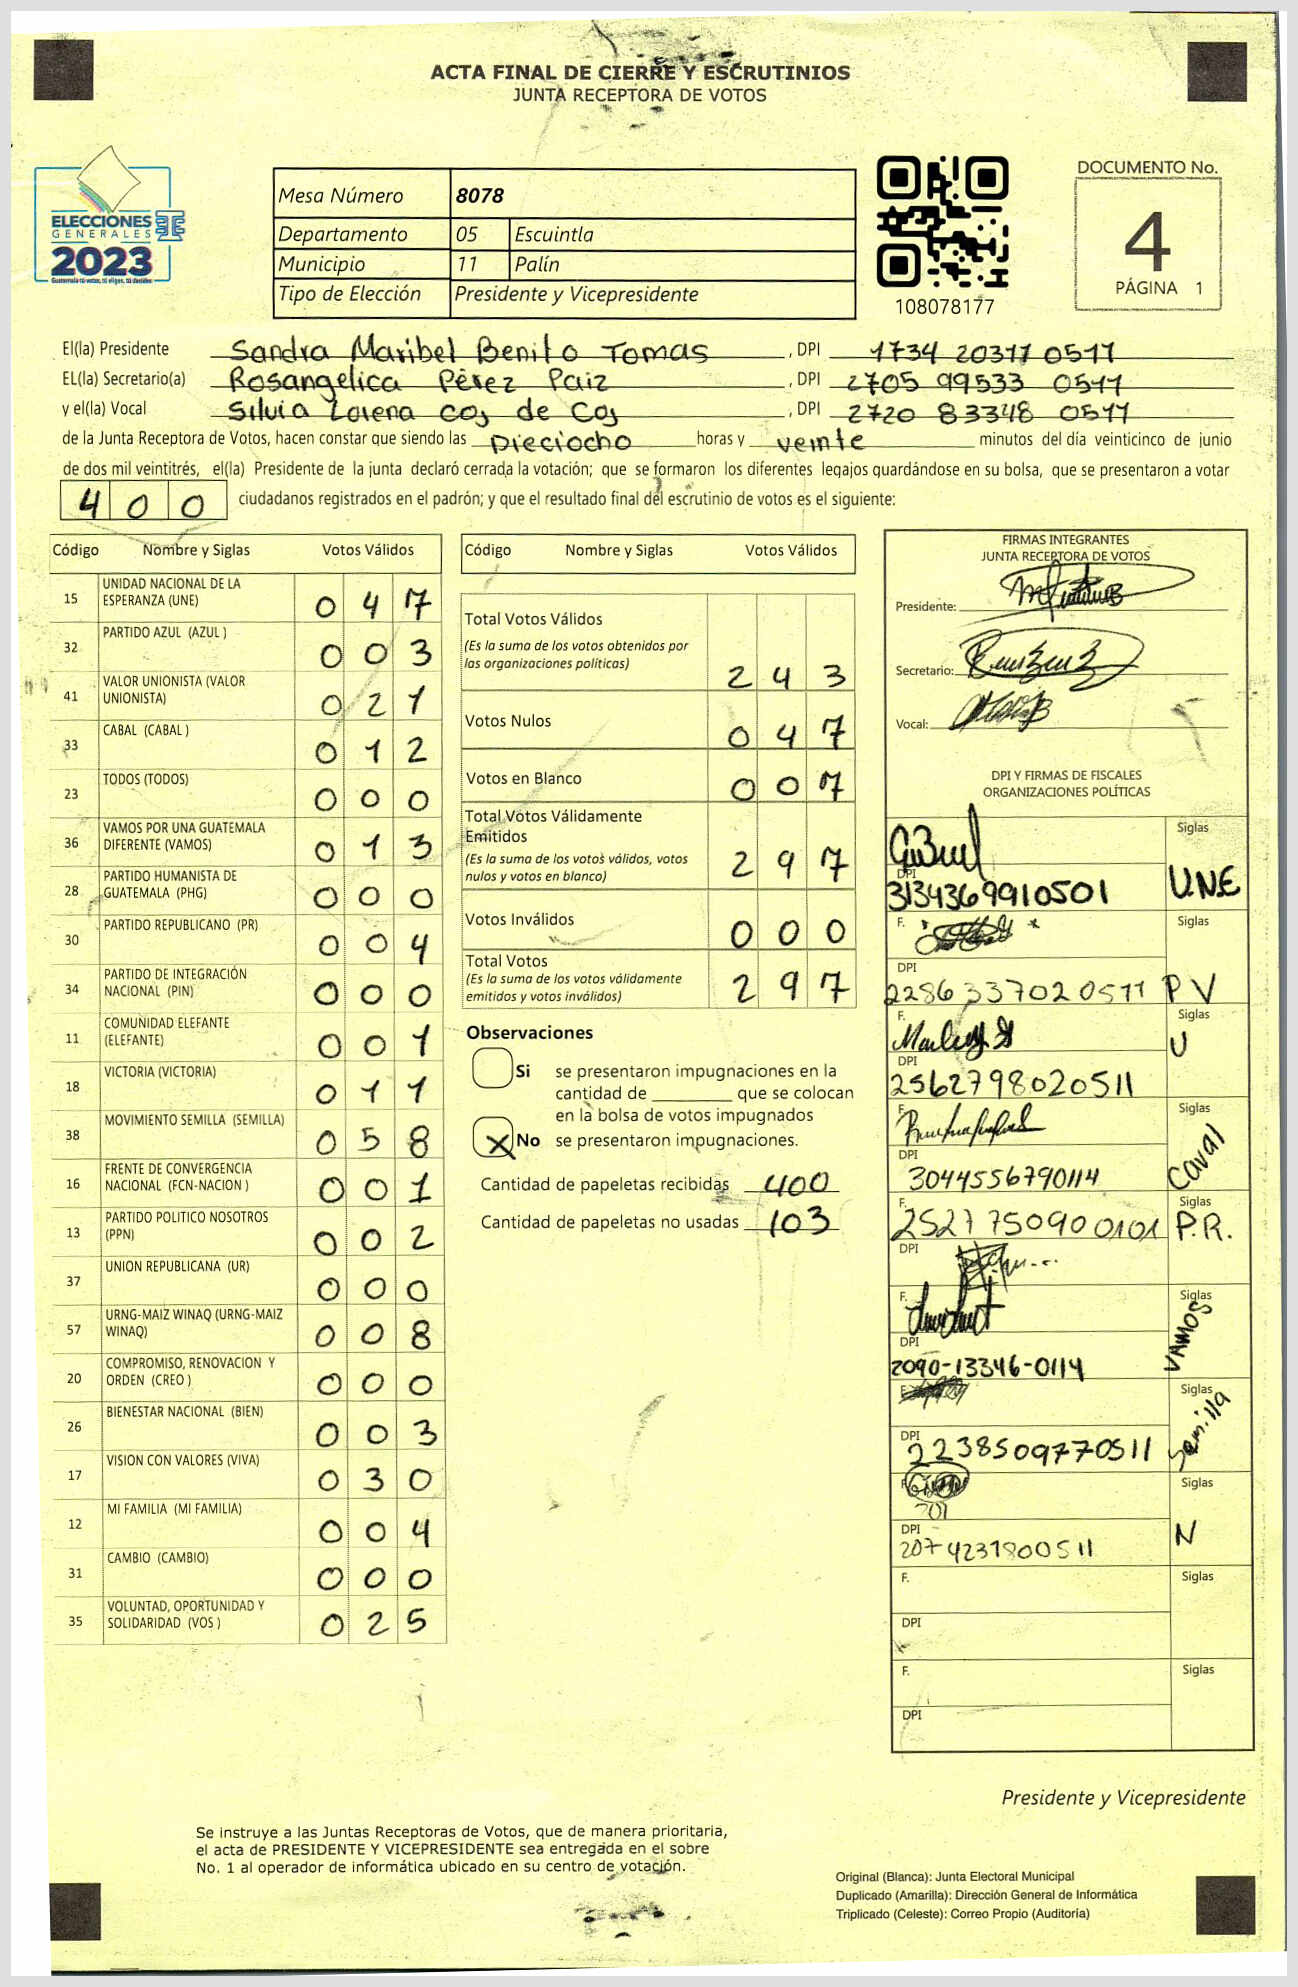 ACTA FINAL DE CIERRE Y ESCRUTINIOS
JUNTA RECEPTORA DE VOTOS
ELECCIONES
GENERALES
2023
Guatemala tú votas, tú eliges, tú decides
Mesa Número 8078
Departamento 05 Escuintla
Municipio 11 Palín
Tipo de Elección Presidente y Vicepresidente
108078177
DOCUMENTO No.
4
PÁGINA 1
El(la) Presidente Sandra Maribel Benito Tomas , DPI 1734 20317 0511
EL(la) Secretario(a) Rosangelica Pérez Paiz , DPI 2705 99533 0511
y el(la) Vocal Silvia Lorena Coj de Coj , DPI 2720 83348 0511
de la Junta Receptora de Votos, hacen constar que siendo las Dieciocho horas y veinte minutos del día veinticinco de junio
de dos mil veintitrés, el(la) Presidente de la junta declaró cerrada la votación; que se formaron los diferentes legajos guardándose en su bolsa, que se presentaron a votar
400 ciudadanos registrados en el padrón; y que el resultado final del escrutinio de votos es el siguiente:
Código Nombre y Siglas Votos Válidos
15 UNIDAD NACIONAL DE LA ESPERANZA (UNE) 047
32 PARTIDO AZUL (AZUL ) 003
41 VALOR UNIONISTA (VALOR UNIONISTA) 021
33 CABAL (CABAL ) 012
23 TODOS (TODOS) 000
36 VAMOS POR UNA GUATEMALA DIFERENTE (VAMOS) 013
28 PARTIDO HUMANISTA DE GUATEMALA (PHG) 000
30 PARTIDO REPUBLICANO (PR) 004
34 PARTIDO DE INTEGRACIÓN NACIONAL (PIN) 000
11 COMUNIDAD ELEFANTE (ELEFANTE) 001
18 VICTORIA (VICTORIA) 011
38 MOVIMIENTO SEMILLA (SEMILLA) 058
16 FRENTE DE CONVERGENCIA NACIONAL (FCN-NACION ) 001
13 PARTIDO POLITICO NOSOTROS (PPN) 002
37 UNION REPUBLICANA (UR) 000
57 URNG-MAIZ WINAQ (URNG-MAIZ WINAQ) 008
20 COMPROMISO, RENOVACION Y ORDEN (CREO ) 000
26 BIENESTAR NACIONAL (BIEN) 003
17 VISION CON VALORES (VIVA) 030
12 MI FAMILIA (MI FAMILIA) 004
31 CAMBIO (CAMBIO) 000
35 VOLUNTAD, OPORTUNIDAD Y SOLIDARIDAD (VOS ) 025
Código Nombre y Siglas Votos Válidos
Total Votos Válidos
(Es la suma de los votos obtenidos por
las organizaciones políticas) 243
Votos Nulos 047
Votos en Blanco 007
Total Votos Válidamente
Emitidos
(Es la suma de los votos válidos, votos
nulos y votos en blanco) 297
Votos Inválidos 000
Total Votos
(Es la suma de los votos válidamente
emitidos y votos inválidos) 297
Observaciones
Si se presentaron impugnaciones en la
cantidad de ________ que se colocan
en la bolsa de votos impugnados
X No se presentaron impugnaciones.
Cantidad de papeletas recibidas 400
Cantidad de papeletas no usadas 103
FIRMAS INTEGRANTES
JUNTA RECEPTORA DE VOTOS
Presidente:
Secretario:
Vocal:
DPI Y FIRMAS DE FISCALES
ORGANIZACIONES POLÍTICAS
Siglas
DPI
3134369910501 U.N.E
F. Siglas
DPI
2286 33702 0511 P V
F. Siglas
U
DPI
2562798020511
F. Siglas
DPI
3044556790114 Caval
F. Siglas
2527 75090 0101 P.R.
DPI
F. Siglas
DPI
2090-13346-0114 VAMOS
F. Siglas
DPI
2238509770511 Semilla
F. Siglas
201
DPI
2074231800511 N
F. Siglas
DPI
F. Siglas
DPI
Presidente y Vicepresidente
Se instruye a las Juntas Receptoras de Votos, que de manera prioritaria,
el acta de PRESIDENTE Y VICEPRESIDENTE sea entregada en el sobre
No. 1 al operador de informática ubicado en su centro de votación.
Original (Blanca): Junta Electoral Municipal
Duplicado (Amarilla): Dirección General de Informática
Triplicado (Celeste): Correo Propio (Auditoría)